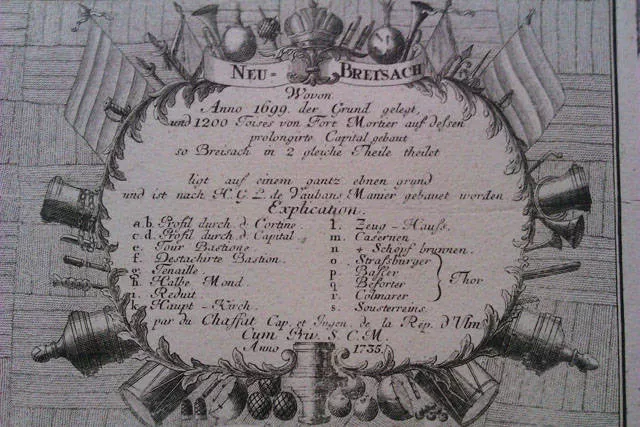 NEU - BREISACH
Wovon
Anno 1699. der Grund gelegt,
und 1200 Toises von Fort Mortier auf dessen
prolongirte Capital gebaut
so Breisach in 2 gleiche Theile theilet
ligt auf einem gantz ebnen grund
und ist nach H. G. L. de Vaubans Manier gebauet worden
Explication.
a.b. Profil durch d Cortine
c.d. Profil durch d Capital.
e. Tour Bastione
f. Destachirte Bastion.
g. Tenaille
h. Halbe Mond.
i. Reduit
k. Haupt-Kirch.
l. Zeug-Hauss.
m. Casernen
n. 4 Schöpf brunnen.
o. Strassburger
p. Basler
q. Beforter
r. Colmarer
Thor
s. Sousterreins.
par du Chaffat, Cap. et Ingen. de la Rép. d'Ulm
Cum Priv. S. C. M.
Anno 1735.